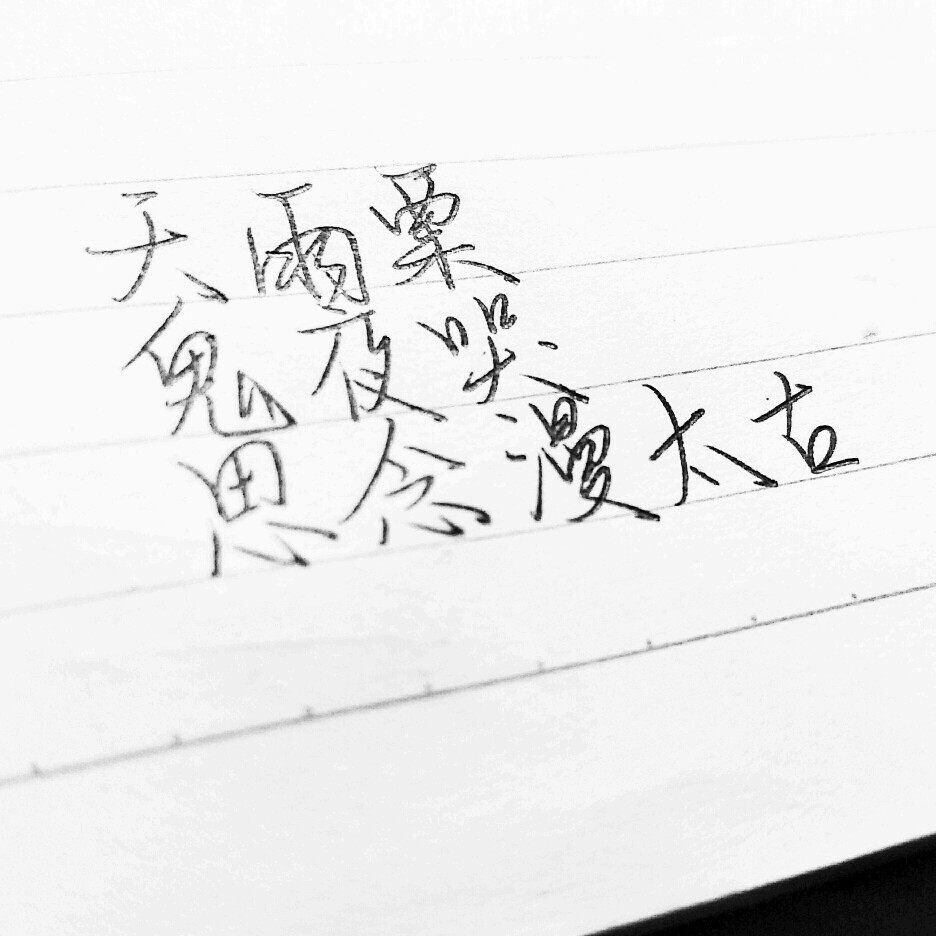 天雨粟
鬼夜哭
思念漫太古